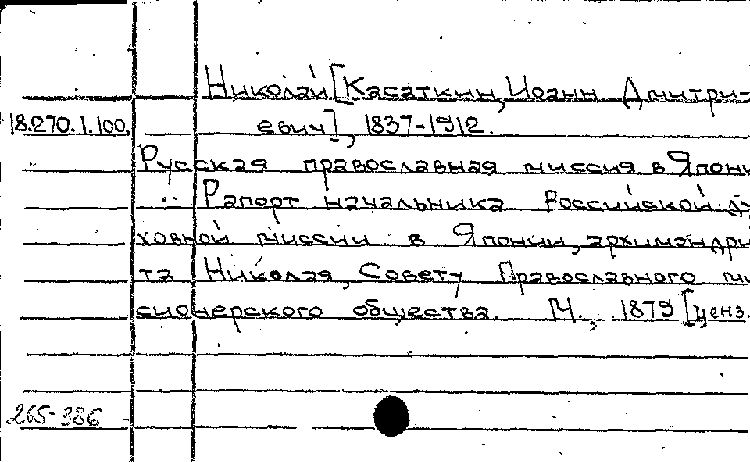 Николай [Касаткин, Иоанн Дмитри-
18.270.1.100. евич], 1837-1912.
Русская православная миссия в Япони
Рапорт начальника Российской ду-
ховной миссии в Японии, архимандри-
та Николая, Совету Православного ми
сионерского общества. М., 1879 [ценз.
265-386